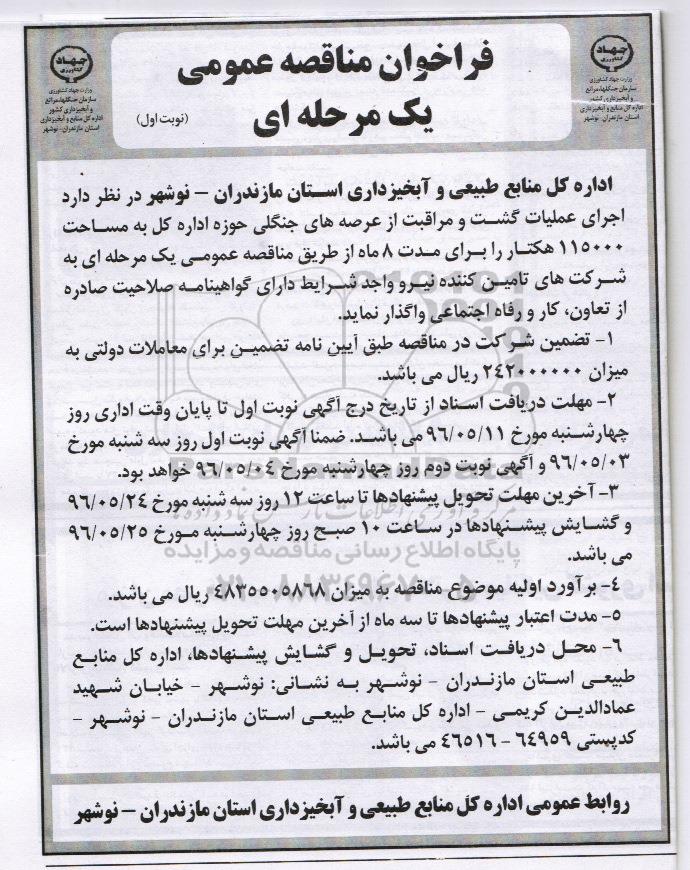 فراخوان مناقصه عمومی
یک مرحله ای
(نوبت اول)
جهاد
کشاورزی
وزارت جهاد کشاورزی
سازمان جنگلها، مراتع
و آبخیزداری کشور
اداره کل منابع و آبخیزداری
استان مازندران- نوشهر
جهاد
کشاورزی
وزارت جهاد کشاورزی
سازمان جنگلها، مراتع
و آبخیزداری کشور
اداره کل منابع و آبخیزداری
استان مازندران- نوشهر
اداره کل منابع طبیعی و آبخیزداری استان مازندران – نوشهر در نظر دارد
اجرای عملیات گشت و مراقبت از عرصه های جنگلی حوزه اداره کل به مساحت
۱۱۵۰۰۰ هکتار را برای مدت ۸ ماه از طریق مناقصه عمومی یک مرحله ای به
شرکت های تامین کننده نیرو واجد شرایط دارای گواهینامه صلاحیت صادره
از تعاون، کار و رفاه اجتماعی واگذار نماید.
۱- تضمین شرکت در مناقصه طبق آیین نامه تضمین برای معاملات دولتی به
میزان ۲۴۲۰۰۰۰۰۰ ریال می باشد.
۲- مهلت دریافت اسناد از تاریخ درج آگهی نوبت اول تا پایان وقت اداری روز
چهارشنبه مورخ ۹۶/۰۵/۱۱ می باشد. ضمنا آگهی نوبت اول روز سه شنبه مورخ
۹۶/۰۵/۰۳ و آگهی نوبت دوم روز چهارشنبه مورخ ۹۶/۰۵/۰۴ خواهد بود.
۳- آخرین مهلت تحویل پیشنهادها تا ساعت ۱۲ روز سه شنبه مورخ ۹۶/۰۵/۲۴
و گشایش پیشنهادها در ساعت ۱۰ صبح روز چهارشنبه مورخ ۹۶/۰۵/۲۵
می باشد.
۴- برآورد اولیه موضوع مناقصه به میزان ۴۸۳۵۵۰۵۸۶۸ ریال می باشد.
۵- مدت اعتبار پیشنهادها تا سه ماه از آخرین مهلت تحویل پیشنهادها است.
۶- محل دریافت اسناد، تحویل و گشایش پیشنهادها، اداره کل منابع
طبیعی استان مازندران - نوشهر به نشانی: نوشهر - خیابان شهید
عمادالدین کریمی - اداره کل منابع طبیعی استان مازندران - نوشهر -
کدپستی ۶۴۹۵۹ - ۴۶۵۱۶ می باشد.
روابط عمومی اداره کل منابع طبیعی و آبخیزداری استان مازندران – نوشهر
پایگاه اطلاع رسانی مناقصه و مزایده